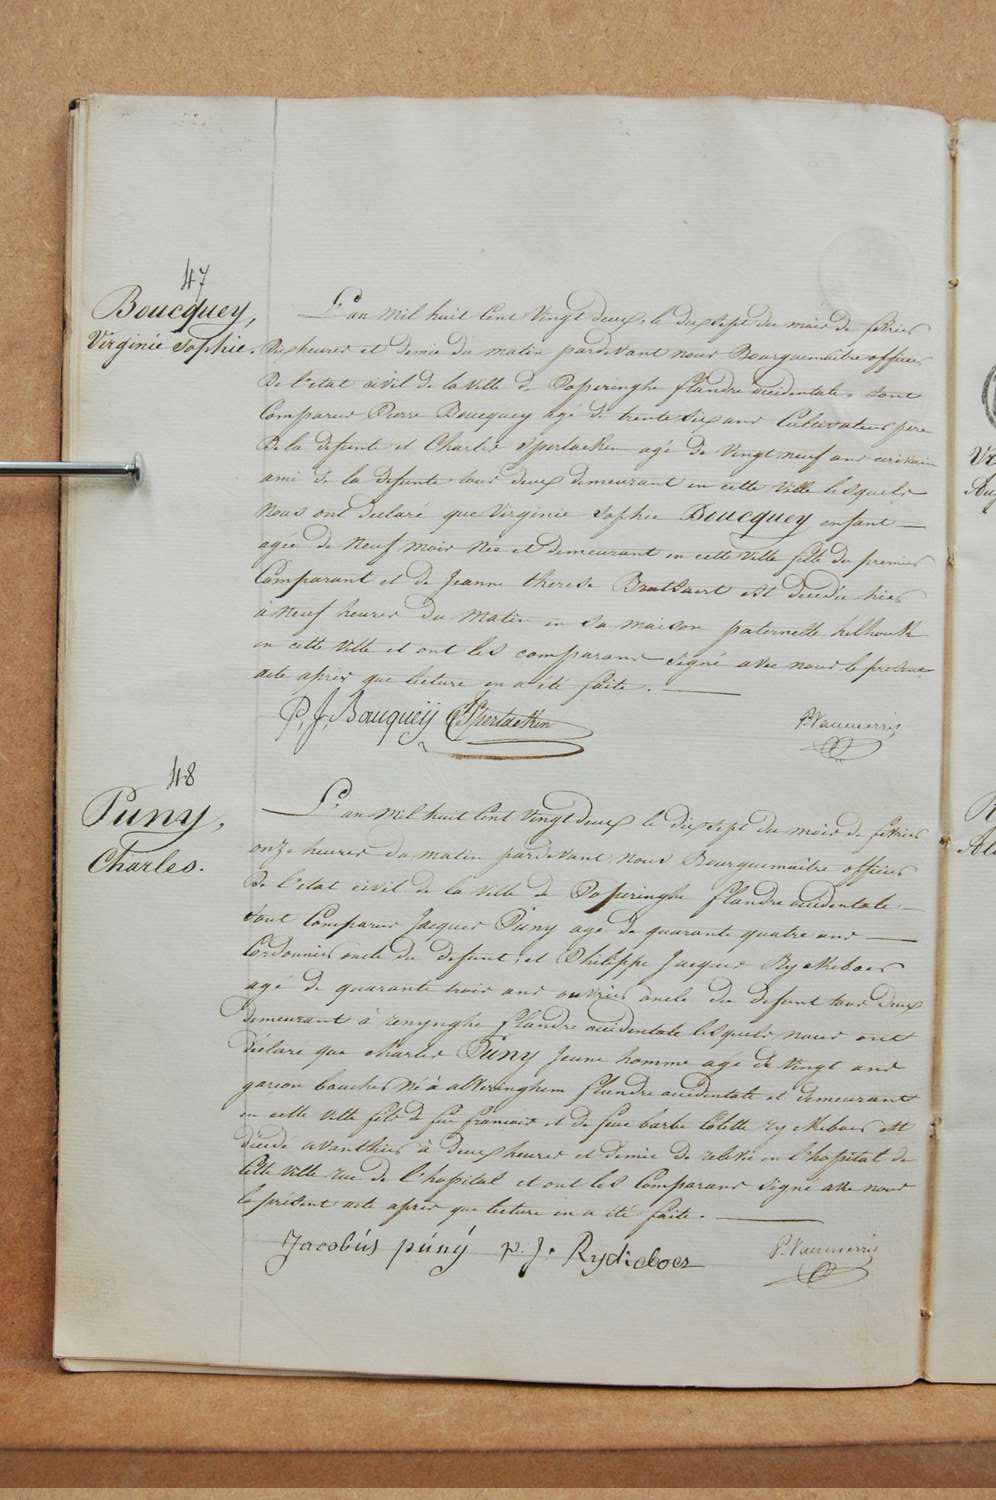 47
Boucquey,
Virginie Sophie.
L'an mil huit Cent Vingt deux, le dix sept du mois de fevrier
Dix heures et demie du matin pardevant nous Bourguemaître officier
De l'etat civil de la ville de Poperinghe flandre occidentale, sont
Comparus Pierre Boucquey agé de trente six ans Cultivateur pere
De la defunte et Charles Sperlaeken agé de Vingt neuf ans ecrivain
ami de la defunte tous deux demeurant en cette ville lesquels
Nous ont declaré que Virginie Sophie Boucquey enfant
agée de Neuf mois Née et demeurant en cette Ville fille du premier
Comparant et de Jeanne therese est decedée hier
à Neuf heures du Matin en sa maison paternelle
en cette ville et ont les comparans signé avec nous le present
acte après que lecture en a été faite.
P. J. Bouqueÿ CSperlaeken P. Vanmerris
48
Puny,
Charles.
L'an mil huit Cent Vingt deux le dix sept du mois de fevrier
onze heures du matin pardevant nous Bourguemaître officier
De l'etat civil de la ville de Poperinghe flandre occidentale
sont Comparus Jacques Puny agé de quarante quatre ans
Cordonnier oncle du defunt, et Philippe Jacques Ryckeboer
agé de quarante trois ans ouvrier oncle du defunt tous deux
demeurant à renynghe flandre occidentale lesquels nous ont
déclaré que Charles Puny Jeune homme agé de Vingt ans
garcon boucher Né à alveringhem flandre occidentale et demeurant
en cette ville fils de feu francois et de feue barbe Colette ryckeboer est
décédé avanthier à deux heures et demie de relevée en l'hopital de
cette ville rue de l'hopital et ont les Comparans signé avec nous
le présent acte après que lecture en a été faite.
Jacobús púný p. J. Rydieboer P. Vanmerris